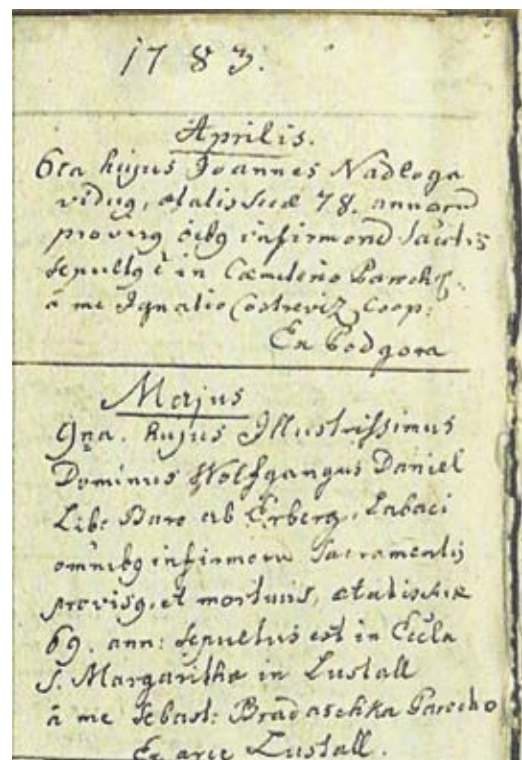 1783.
Aprilis.
6ta hujus Joannes Nadloga
vidug, ætatis suæ 78. annord
provisg oibg infirmord sacrtis
sepultg è in Cæmeterio Paroch:
à me Ignatio Costreviz Coop:
Ex Podgora
Majus
9na. hujus Illustrissimus
Dominus Wolfgangus Daniel
Lib: Baro ab Erberg, Labaci
omnibg infirmoru Sacramentis
provisg, et mortuus, ætatis suæ
69. ann: sepultus est in Eccla
S. Margarithæ in Lustall
à me Sebast: Bradaschka Parocho
Ex arce Lustall.